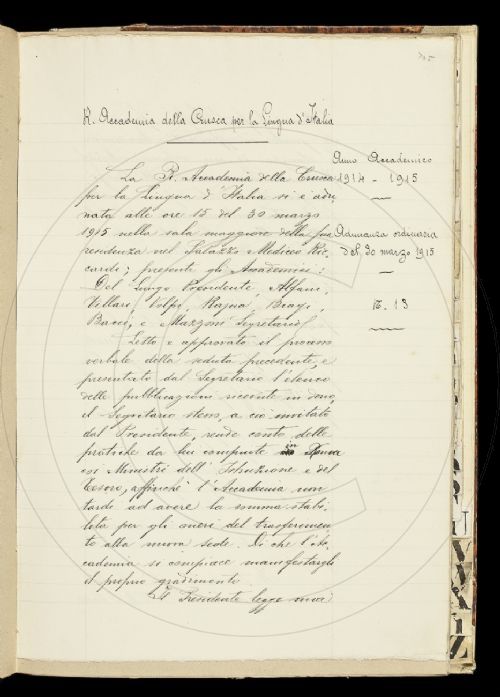 R. Accademia della Crusca per la Lingua d'Italia
Anno Accademico
1914 - 1915
Adunanza ordinaria
del 30 marzo 1915
N. 13
La R. Accademia della Crusca
per la Lingua d'Italia si è adu
nata alle ore 15 del 30 marzo
1915 nella sala maggiore della sua
residenza nel Palazzo Mediceo Ric-
cardi; presenti gli Accademici:
Del Lungo Presidente, Alfani,
Villari, Volpi, Rajna, Biagi,
Bacci, e Mazzoni Segretario.
Letto e approvato il processo
verbale della seduta precedente, e
presentato dal Segretario l'elenco
delle pubblicazioni ricevute in dono,
il Segretario stesso, a ciò invitato
dal Presidente, rende conto delle
pratiche da lui compiute in Roma
coi Ministri dell'Istruzione e del
Tesoro, affinchè l'Accademia non
tardi ad avere la somma stabi-
lita per gli oneri del trasferimen-
to alla nuova sede. Di che l'Ac-
cademia si compiace manifestargli
il proprio gradimento.
Il Presidente legge